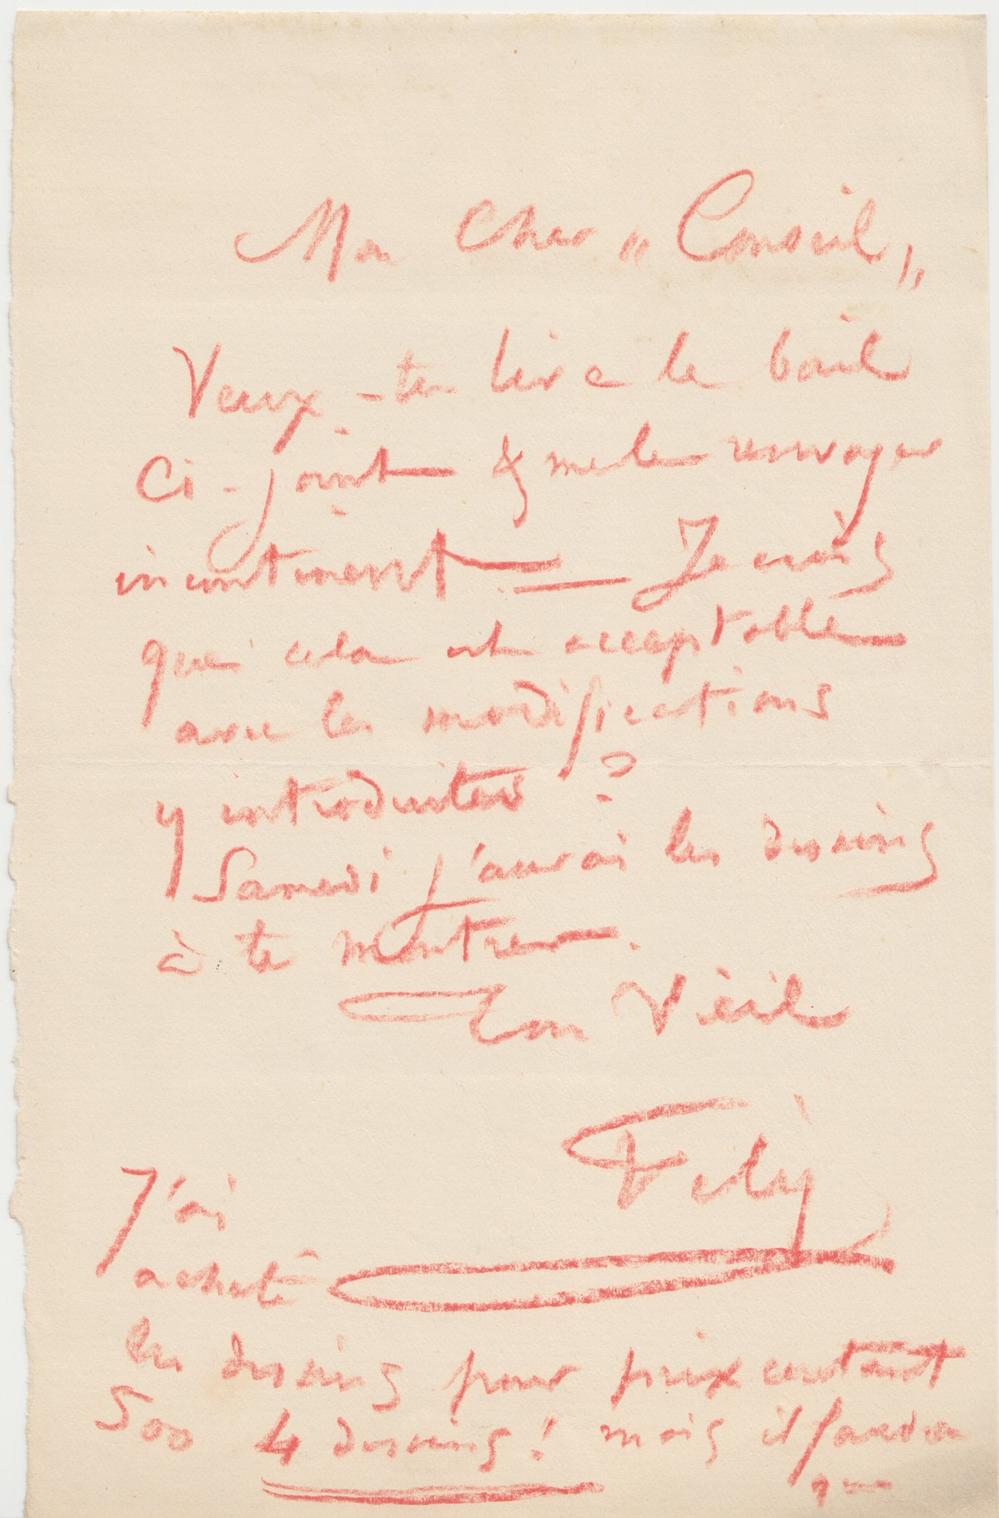 Mon Cher „ Conseil „
Veux-tu lire le bail
ci-joint & me le renvoyer
incontinent — Je crois
que cela est acceptable
avec les modifications
y introduites ?
Samedi j'aurai les dessins
à te montrer.
Ton Vieil
Fély
J'ai
acheté
les dessins pour prix coutant
500 4 dessins ! mais il faudra
que